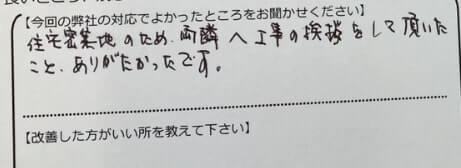 【今回の弊社の対応でよかったところをお聞かせください】
住宅密集地のため、両隣へ工事の挨拶をして頂いた
こと、ありがたかったです。
【改善した方がいい所を教えて下さい】